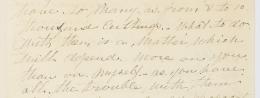 have so many as from 8 to 10
thousand cuttings. what to do
with them is a matter which
will depend more on you
than on myself. as you have
all the trouble with them